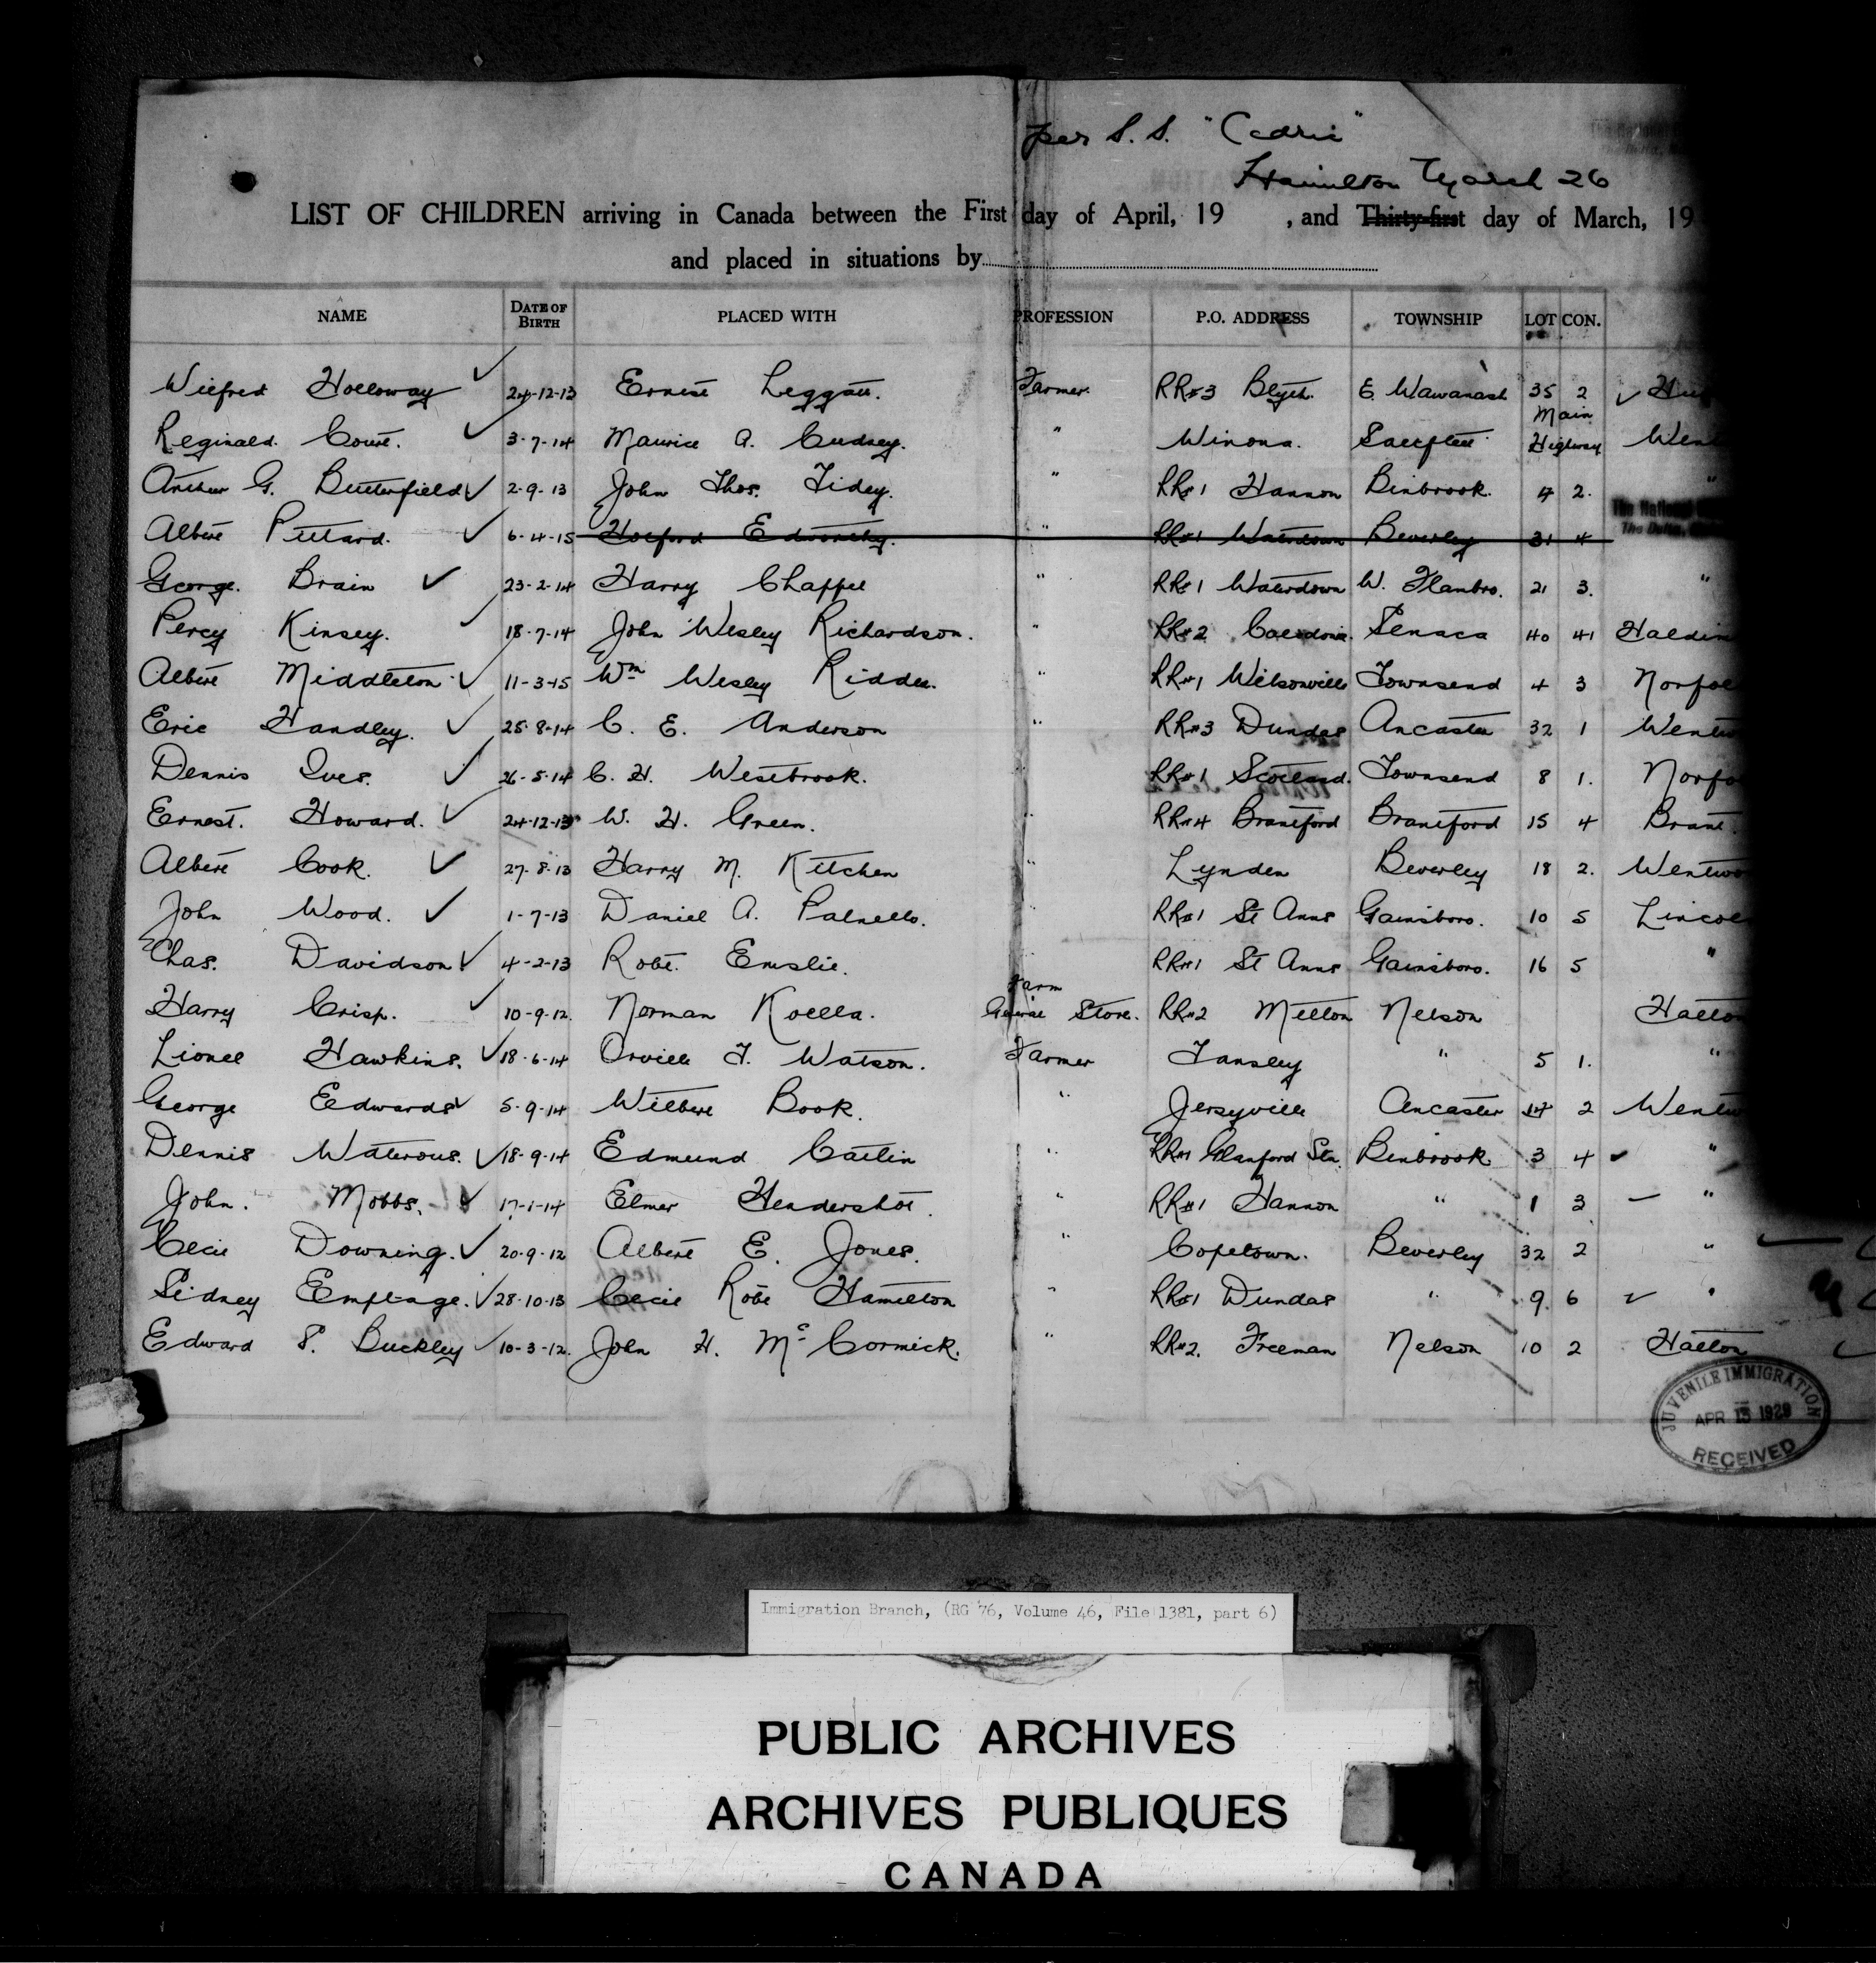 per S.S. "Cedric"
Hamilton March 26
LIST OF CHILDREN arriving in Canada between the First day of April, 19 , and Thirty-first day of March, 19
and placed in situations by
NAME DATE OF BIRTH PLACED WITH PROFESSION P.O. ADDRESS TOWNSHIP LOT CON.
Wilfred Holloway ✓ 24-12-13 Ernest Leggatt. Farmer. RR#3 Blyth. E Wawanash 35 2 ✓
Reginald. Court. ✓ 3-7-14 Maurice A. Cudney. " Winona. Saltfleet Main Highway Went
Arthur G. Butterfield ✓ 2-9-13 John Thos. Tidey. " RR#1 Hannon Binbrook. 4 2. "
Albert Pittard. ✓ 6-4-15 Holford Edworthy. " RR#1 Waterdown Beverley 31 4
George. Brain ✓ 23-2-14 Harry Chappel " RR#1 Waterdown W. Flambro. 21 3. "
Percy Kinsey. ✓ 18-7-14 John Wesley Richardson. " RR#2 Caledonia. Senaca 40 41 Haldim
Albert Middleton ✓ 11-3-15 Wm Wesley Ridder. " RR#1 Wilsonville Townsend 4 3 Norfol
Eric Handley. ✓ 25-8-14 C. E. Anderson " RR#3 Dundas Ancaster 32 1 Wentw
Dennis Ives. ✓ 26-5-14 C. H. Westbrook. " RR#1 Scotland. Townsend 8 1. Norfo
Ernest. Howard. ✓ 24-12-13 W. H. Green. " RR#4 Brantford Brantford 15 4 Brant.
Albert Cook. ✓ 27-8-13 Harry M. Kitchen " Lynden Beverley 18 2. Wentwo
John Wood. ✓ 1-7-13 Daniel A. Palnello. " RR#1 St Anns Gainsboro. 10 5 Lincol
Chas. Davidson ✓ 4-2-13 Robt. Emslie. " RR#1 St Anns Gainsboro. 16 5 "
Harry Crisp. ✓ 10-9-12. Norman Koella. Farm General Store. RR#2 Milton Nelson Halton
Lionel Hawkins. ✓ 18-6-14 Orville F. Watson. Farmer Tansley " 5 1. "
George Edwards ✓ 5-9-14 Wilbert Book. " Jerseyville Ancaster 14 2 Wentw
Dennis Waterous. ✓ 18-9-14 Edmund Catlin " RR#1 Glanford Stn. Binbrook 3 4 ✓ "
John. Mobbs. ✓ 17-1-14 Elmer Hendershot. " RR#1 Hannon " 1 3 "
Cecil Downing. ✓ 20-9-12 Albert E. Jones. " Copetown. Beverley 32 2 "
Sidney Emptage. ✓ 28-10-13 Cecil Robt Hamilton " RR#1 Dundas " 9. 6 ✓ "
Edward S. Buckley ✓ 10-3-12. John H. McCormick. " RR#2. Freeman Nelson 10 2 Halton
JUVENILE IMMIGRATION
APR 13 1929
RECEIVED
Immigration Branch, (RG 76, Volume 46, File 1381, part 6)
PUBLIC ARCHIVES
ARCHIVES PUBLIQUES
CANADA